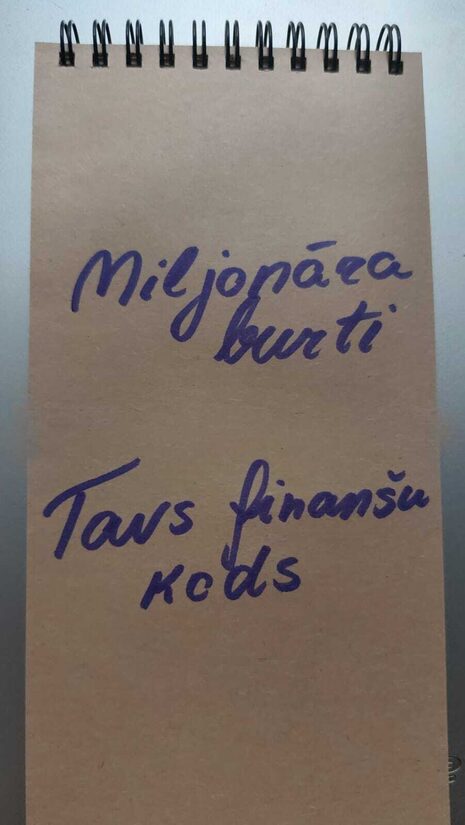 Miljonāra
burti
Tavs finanšu
kods